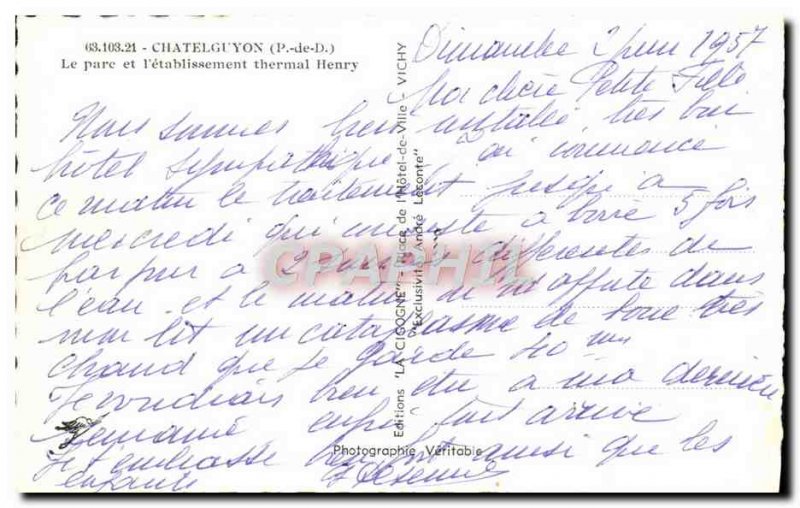 63.103.21 - CHATELGUYON (P.-de-D.)
Le parc et l'établissement thermal Henry
Dimanche 2 juin 1957
Ma chère Petite Fille
Nous sommes bien installé, très bon
hôtel sympathique, j'ai commencé
ce matin le traitement jusqu'à
mercredi qui consiste à boire 5 fois
par jour à 2 différentes de
l'eau et le matin on m'apporte dans
mon lit un cataplasme de boue très
chaud que je garde 40 mn
Je voudrais bien être à ma dernière
semaine, enfin tout arrive
Je t'embrasse ainsi que les
enfants
Editions "LA CIGOGNE" - Place de l'Hôtel-de-Ville - VICHY
D'Exclusivité André Leconte"
Photographie Véritable
CPAPHIL